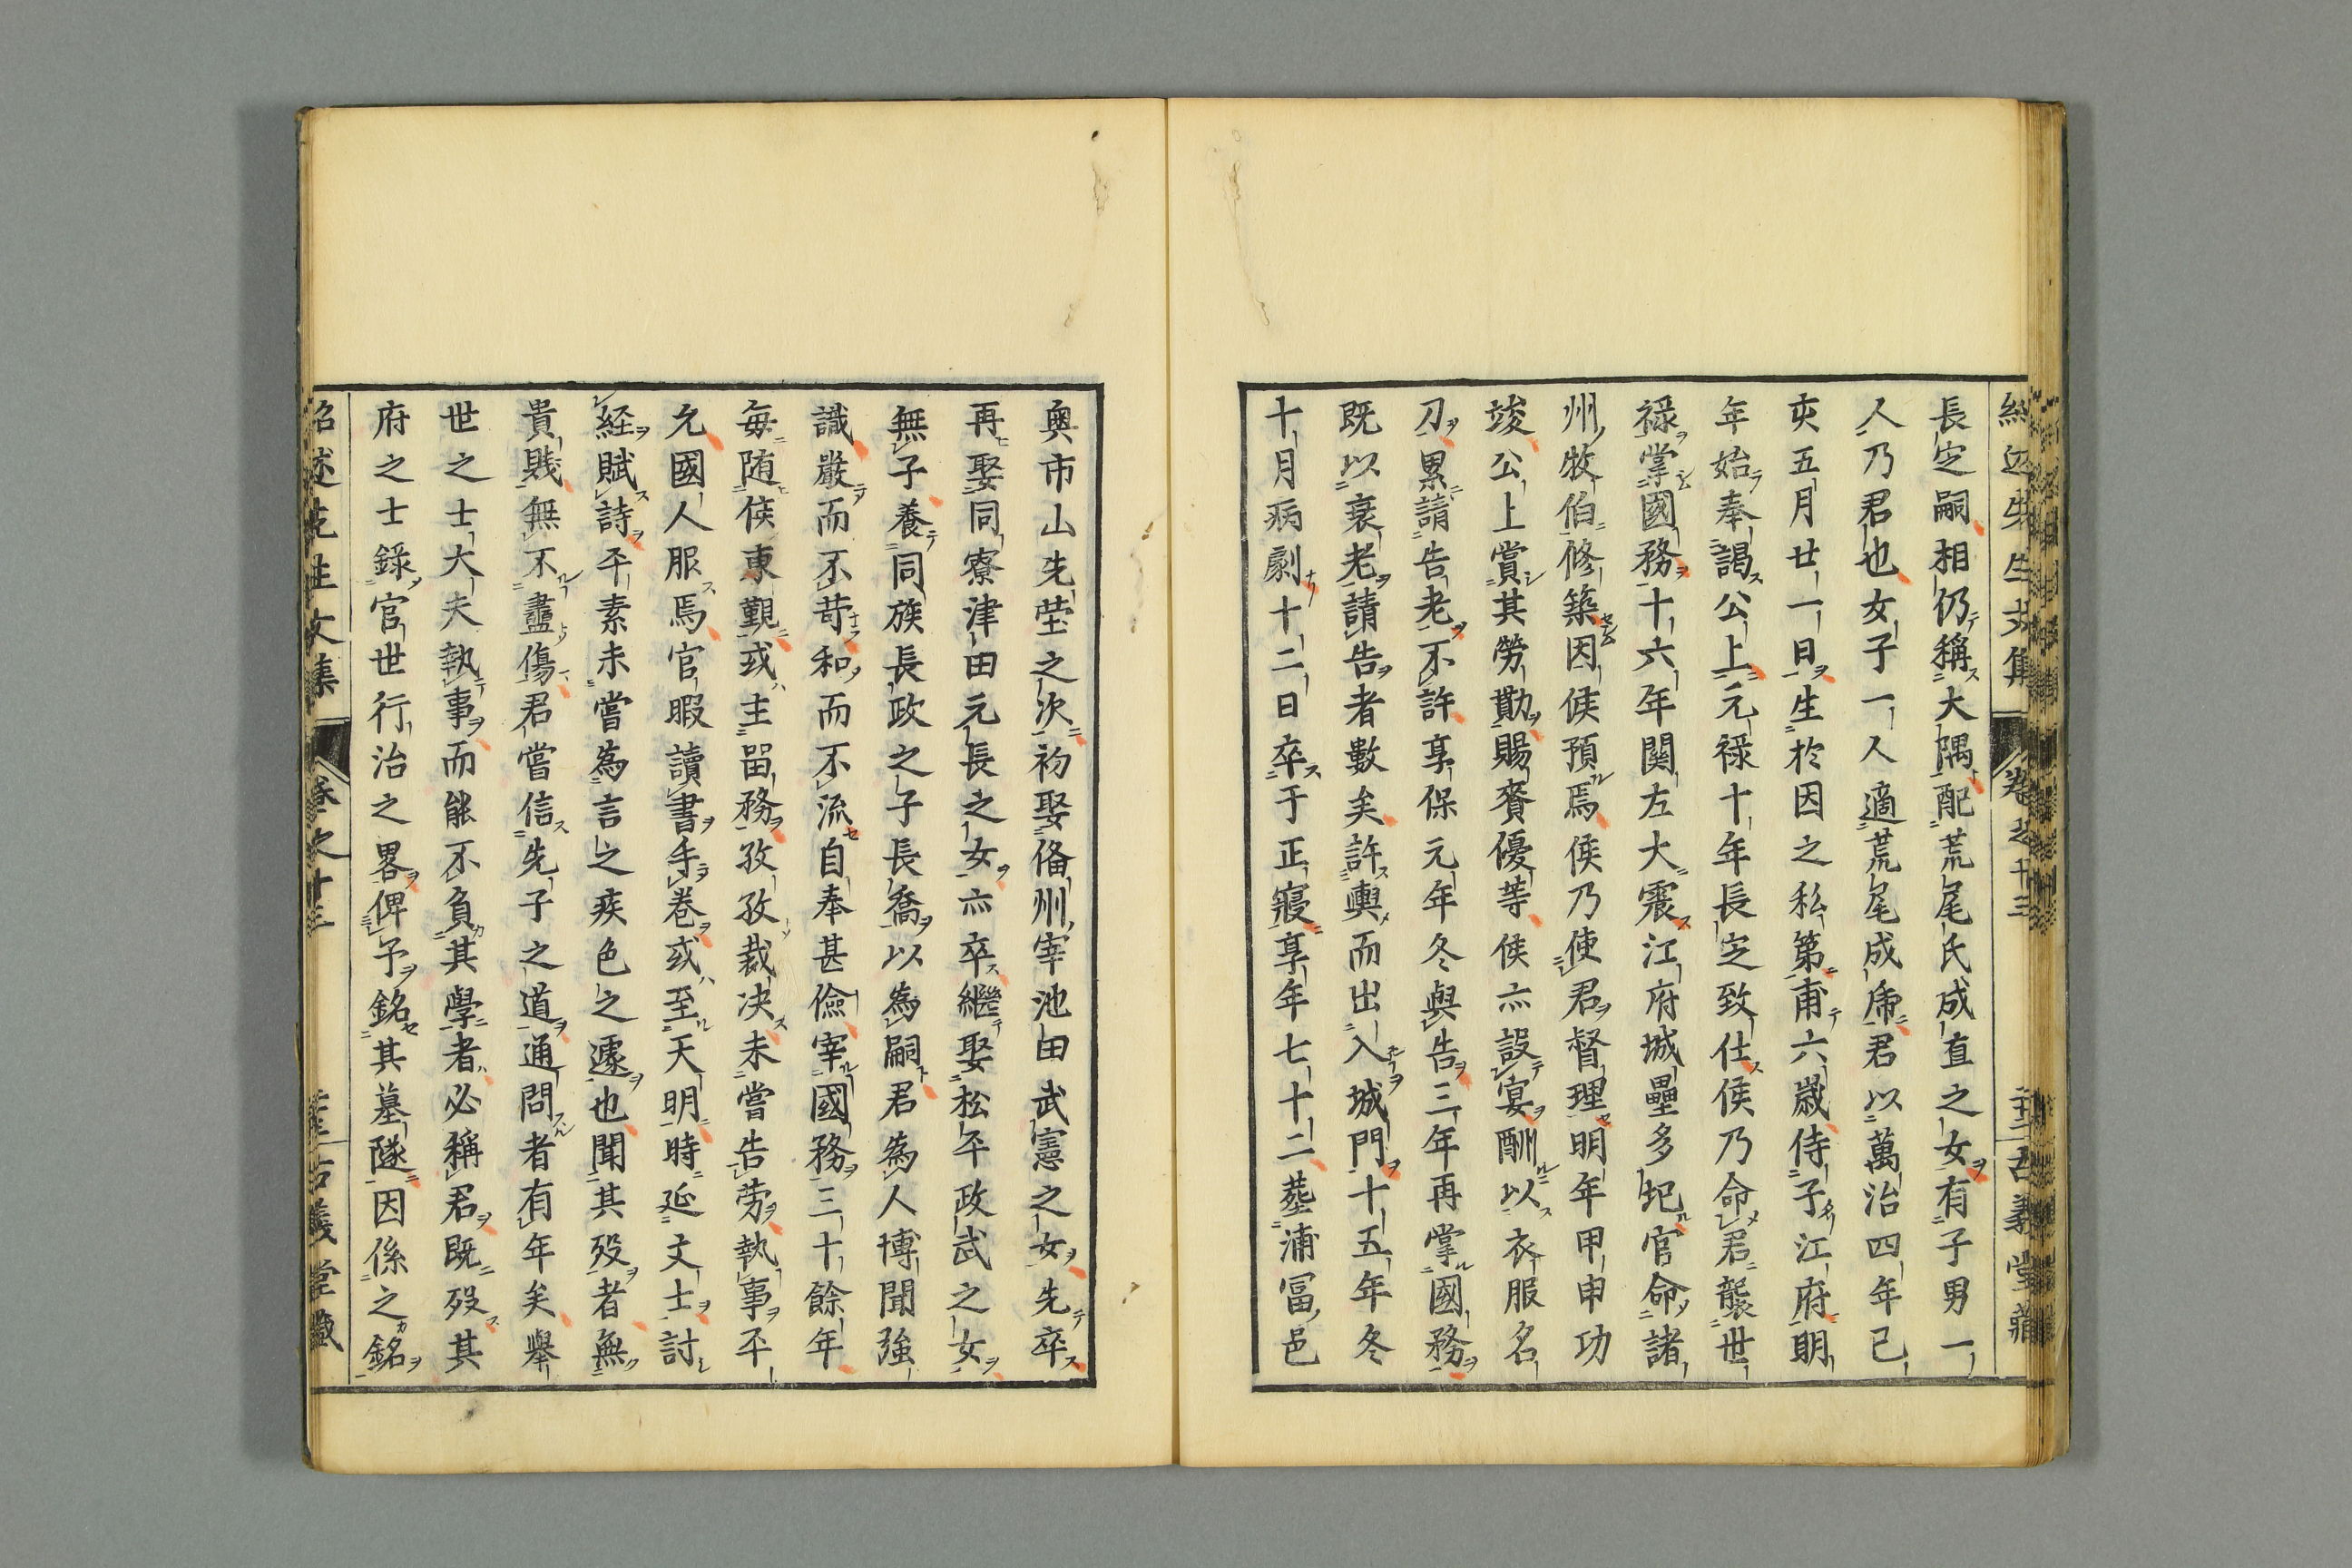 長定嗣相仍稱大隅配荒尾氏成直之女有子男一
人乃君也女子一人適荒尾成庸君以萬治四年己
亥五月廿一日生於因之私第甫六歲侍子江府明
年始奉謁公上元禄十年長定致仕侯乃命君襲世
禄掌國務十六年関左大震江府城壘多圮官命諸
州牧伯修築因侯預焉侯乃使君督理明年甲申功
竣公上賞其勞勩賜賚優等侯亦設宴酬以衣服名
刀累請告老不許享保元年冬與告三年再掌國務
既以衰老請告者數矣許輿而出入城門十五年冬
十月病劇十二日卒于正寢享年七十二葬浦冨邑
奥市山先塋之次初娶俻州宰池田武憲之女先卒
再娶同寮津田元長之女亦卒繼娶松平政武之女
無子養同族長政之子長喬以為嗣君為人博聞強
識嚴而不苛和而不流自奉甚儉宰國務三十餘年
毎随侯東覲或主畱務孜孜裁决未嘗告劳執事平
允國人服焉官暇讀書手巻或至天明時延文士討
経賦詩平素未嘗為言之疾色之遽也聞其殁者無
貴賎無不盡傷君嘗信先子之道通問者有年矣舉
世之士大夫執事而能不負其學者必稱君既殁其
府之士錄官世行治之畧俾予銘其墓隧因係之銘
紹述先生文集 卷之十三 古義堂藏